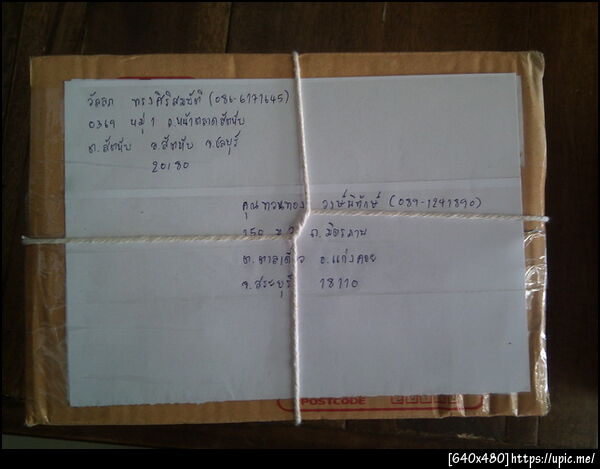 วัลลภ ทรงศิริสมบัติ (086-6171645)
0369 หมู่ 1 ถ.หน้าตลาดสัตหีบ
ต.สัตหีบ อ.สัตหีบ จ.ชลบุรี
20180
คุณ ทวนทอง วงษ์พิทักษ์ (089-1241890)
150 ถ.มิตรภาพ
ต.ตาลเดี่ยว อ.แก่งคอย
จ.สระบุรี 18110
POSTCODE
[640x480]https://upic.me/